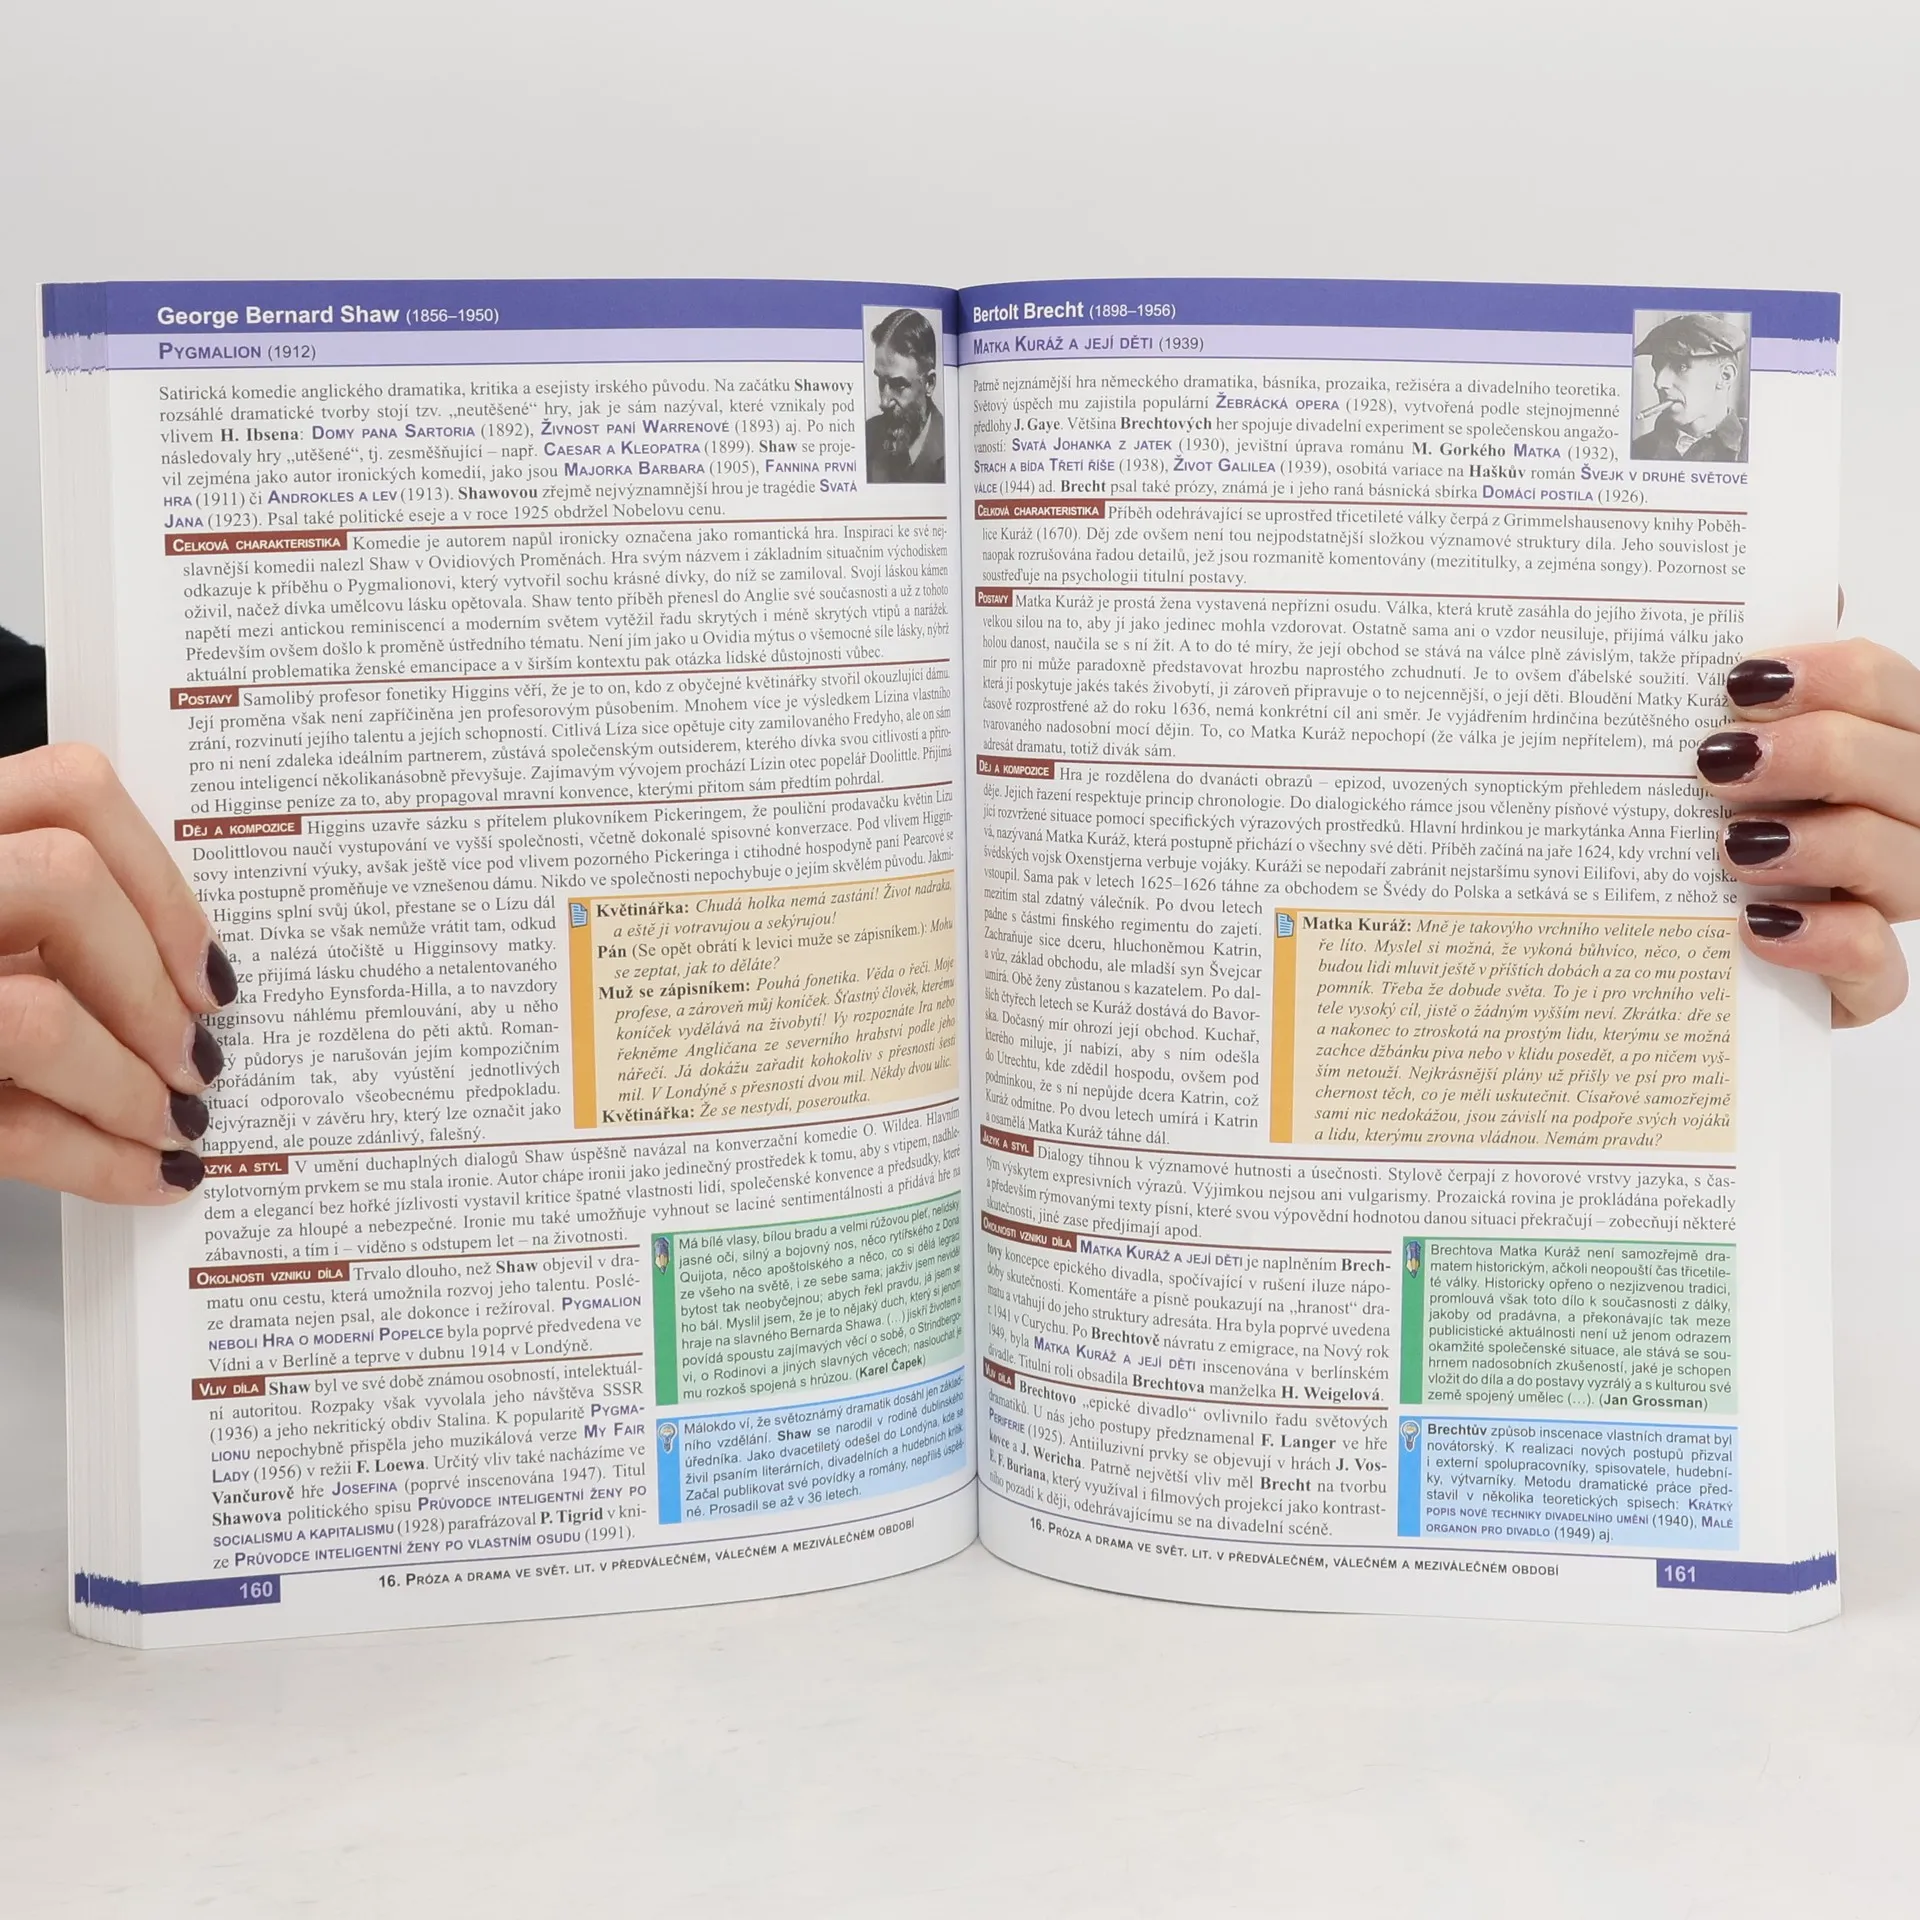 George Bernard Shaw (1856–1950)
PYGMALION (1912)
Satirická komedie anglického dramatika, kritika a esejisty irského původu. Na začátku Shawovy
rozsáhlé dramatické tvorby stojí tzv. „neutěšené“ hry, jak je sám nazýval, které vznikaly pod
vlivem H. Ibsena: DOMY PANA SARTORIA (1892), ŽIVNOST PANÍ WARRENOVÉ (1893) aj. Po nich
následovaly hry „utěšené“, tj. zesměšňující – např. CAESAR A KLEOPATRA (1899). Shaw se proje-
vil zejména jako autor ironických komedií, jako jsou MAJORKA BARBARA (1905), FANNINA PRVNÍ
HRA (1911) či ANDROKLES A LEV (1913). Shawovou zřejmě nejvýznamnější hrou je tragédie SVATÁ
JANA (1923). Psal také politické eseje a v roce 1925 obdržel Nobelovu cenu.
CELKOVÁ CHARAKTERISTIKA Komedie je autorem napůl ironicky označena jako romantická hra. Inspiraci ke své nej-
slavnější komedii nalezl Shaw v Ovidiových Proměnách. Hra svým názvem i základním situačním východiskem
odkazuje k příběhu o Pygmalionovi, který vytvořil sochu krásné dívky, do níž se zamiloval. Svojí láskou kámen
oživil, načež dívka umělcovu lásku opětovala. Shaw tento příběh přenesl do Anglie své současnosti a už z tohoto
napětí mezi antickou reminiscencí a moderním světem vytěžil řadu skrytých i méně skrytých vtipů a narážek.
Především ovšem došlo k proměně ústředního tématu. Není jím jako u Ovidia mýtus o všemocné síle lásky, nýbrž
aktuální problematika ženské emancipace a v širším kontextu pak otázka lidské důstojnosti vůbec.
POSTAVY Samolibý profesor fonetiky Higgins věří, že je to on, kdo z obyčejné květinářky stvořil okouzlující dámu.
Její proměna však není zapříčiněna jen profesorovým působením. Mnohem více je výsledkem Lízina vlastního
zrání, rozvinutí jejího talentu a jejích schopností. Citlivá Líza sice opětuje city zamilovaného Fredyho, ale on sám
pro ni není zdaleka ideálním partnerem, zůstává společenským outsiderem, kterého dívka svou citlivostí a přiro-
zenou inteligencí několikanásobně převyšuje. Zajímavým vývojem prochází Lízin otec popelář Doolittle. Přijímá
od Higginse peníze za to, aby propagoval mravní konvence, kterými přitom sám předtím pohrdal.
DĚJ A KOMPOZICE Higgins uzavře sázku s přítelem plukovníkem Pickeringem, že pouliční prodavačku květin Lízu
Doolittlovou naučí vystupování ve vyšší společnosti, včetně dokonalé spisovné konverzace. Pod vlivem Higgin-
sovy intenzivní výuky, avšak ještě více pod vlivem pozorného Pickeringa i ctihodné hospodyně paní Pearcové se
dívka postupně proměňuje ve vznešenou dámu. Nikdo ve společnosti nepochybuje o jejím skvělém původu. Jakmi-
Higgins splní svůj úkol, přestane se o Lízu dál
ímat. Dívka se však nemůže vrátit tam, odkud
a, a nalézá útočiště u Higginsovy matky.
ze přijímá lásku chudého a netalentovaného
ka Fredyho Eynsforda-Hilla, a to navzdory
Higginsovu náhlému přemlouvání, aby u něho
stala. Hra je rozdělena do pěti aktů. Roman-
ký půdorys je narušován jejím kompozičním
pořádáním tak, aby vyústění jednotlivých
situací odporovalo všeobecnému předpokladu.
Nejvýrazněji v závěru hry, který lze označit jako
happyend, ale pouze zdánlivý, falešný.
Květinářka: Chudá holka nemá zastání! Život nadraka,
a eště ji votravujou a sekýrujou!
Pán (Se opět obrátí k levici muže se zápisníkem.): Mohu
se zeptat, jak to děláte?
Muž se zápisníkem: Pouhá fonetika. Věda o řeči. Moje
profese, a zároveň můj koníček. Šťastný člověk, kterému
koníček vydělává na živobytí! Vy rozpoznáte Ira nebo
řekněme Angličana ze severního hrabství podle jeho
nářečí. Já dokážu zařadit kohokoliv s přesností šesti
mil. V Londýně s přesností dvou mil. Někdy dvou ulic.
Květinářka: Že se nestydí, poseroutka.
JAZYK A STYL V umění duchaplných dialogů Shaw úspěšně navázal na konverzační komedie O. Wildea. Hlavním
stylotvorným prvkem se mu stala ironie. Autor chápe ironii jako jedinečný prostředek k tomu, aby s vtipem, nadhle-
dem a elegancí bez hořké jízlivosti vystavil kritice špatné vlastnosti lidí, společenské konvence a předsudky, které
považuje za hloupé a nebezpečné. Ironie mu také umožňuje vyhnout se laciné sentimentálnosti a přidává hře na
zábavnosti, a tím i – viděno s odstupem let – na životnosti.
OKOLNOSTI VZNIKU DÍLA Trvalo dlouho, než Shaw objevil v dra-
matu onu cestu, která umožnila rozvoj jeho talentu. Poslé-
ze dramata nejen psal, ale dokonce i režíroval. PYGMALION
NEBOLI HRA O MODERNÍ POPELCE byla poprvé předvedena ve
Vídni a v Berlíně a teprve v dubnu 1914 v Londýně.
VLIV DÍLA Shaw byl ve své době známou osobností, intelektuál-
ní autoritou. Rozpaky však vyvolala jeho návštěva SSSR
(1936) a jeho nekritický obdiv Stalina. K popularitě PYGMA-
LIONU nepochybně přispěla jeho muzikálová verze MY FAIR
LADY (1956) v režii F. Loewa. Určitý vliv také nacházíme ve
Vančurově hře JOSEFINA (poprvé inscenována 1947). Titul
Shawova politického spisu PRŮVODCE INTELIGENTNÍ ŽENY PO
SOCIALISMU A KAPITALISMU (1928) parafrázoval P. Tigrid v kni-
ze PRŮVODCE INTELIGENTNÍ ŽENY PO VLASTNÍM OSUDU (1991).
Má bílé vlasy, bílou bradu a velmi růžovou pleť, nelidsky
jasné oči, silný a bojovný nos, něco rytířského z Dona
Quijota, něco apoštolského a něco, co si dělá legraci
ze všeho na světě, i ze sebe sama; jakživ jsem neviděl
bytost tak neobyčejnou; abych řekl pravdu, já jsem se
ho bál. Myslil jsem, že je to nějaký duch, který si jenom
hraje na slavného Bernarda Shawa. (...) jiskří životem a
povídá spoustu zajímavých věcí o sobě, o Strindbergo-
vi, o Rodinovi a jiných slavných věcech; naslouchat je
mu rozkoš spojená s hrůzou. (Karel Čapek)
Málokdo ví, že světoznámý dramatik dosáhl jen základ-
ního vzdělání. Shaw se narodil v rodině dublinského
úředníka. Jako dvacetiletý odešel do Londýna, kde se
živil psaním literárních, divadelních a hudebních kritik.
Začal publikovat své povídky a romány, nepříliš úspěš-
né. Prosadil se až v 36 letech.
160
16. PRÓZA A DRAMA VE SVĚT. LIT. V PŘEDVÁLEČNÉM, VÁLEČNÉM A MEZIVÁLEČNÉM OBDOBÍ
Bertolt Brecht (1898–1956)
MATKA KURÁŽ A JEJÍ DĚTI (1939)
Patrně nejznámější hra německého dramatika, básníka, prozaika, režiséra a divadelního teoretika.
Světový úspěch mu zajistila populární ŽEBRÁCKÁ OPERA (1928), vytvořená podle stejnojmenné
předlohy J. Gaye. Většina Brechtových her spojuje divadelní experiment se společenskou angažo-
vaností: SVATÁ JOHANKA Z JATEK (1930), jevištní úprava románu M. Gorkého MATKA (1932),
STRACH A BÍDA TŘETÍ ŘÍŠE (1938), ŽIVOT GALILEA (1939), osobitá variace na Haškův román ŠVEJK V DRUHÉ SVĚTOVÉ
VÁLCE (1944) ad. Brecht psal také prózy, známá je i jeho raná básnická sbírka DOMÁCÍ POSTILA (1926).
CELKOVÁ CHARAKTERISTIKA Příběh odehrávající se uprostřed třicetileté války čerpá z Grimmelshausenovy knihy Poběh-
lice Kuráž (1670). Děj zde ovšem není tou nejpodstatnější složkou významové struktury díla. Jeho souvislost je
naopak rozrušována řadou detailů, jež jsou rozmanitě komentovány (mezititulky, a zejména songy). Pozornost se
soustřeďuje na psychologii titulní postavy.
POSTAVY Matka Kuráž je prostá žena vystavená nepřízni osudu. Válka, která krutě zasáhla do jejího života, je příliš
velkou silou na to, aby jí jako jedinec mohla vzdorovat. Ostatně sama ani o vzdor neusiluje, přijímá válku jako
holou danost, naučila se s ní žít. A to do té míry, že její obchod se stává na válce plně závislým, takže případný
mír pro ni může paradoxně představovat hrozbu naprostého zchudnutí. Je to ovšem ďábelské soužití. Válk
která jí poskytuje jakés takés živobytí, ji zároveň připravuje o to nejcennější, o její děti. Bloudění Matky Kuráž
časově rozprostřené až do roku 1636, nemá konkrétní cíl ani směr. Je vyjádřením hrdinčina bezútěšného osudu
tvarovaného nadosobní mocí dějin. To, co Matka Kuráž nepochopí (že válka je jejím nepřítelem), má po
adresát dramatu, totiž divák sám.
DĚJ A KOMPOZICE Hra je rozdělena do dvanácti obrazů – epizod, uvozených synoptickým přehledem následuj
děje. Jejich řazení respektuje princip chronologie. Do dialogického rámce jsou včleněny písňové výstupy, dokreslu-
jící rozvržené situace pomocí specifických výrazových prostředků. Hlavní hrdinkou je markytánka Anna Fierling
vá, nazývaná Matka Kuráž, která postupně přichází o všechny své děti. Příběh začíná na jaře 1624, kdy vrchní veli
švédských vojsk Oxenstjerna verbuje vojáky. Kuráži se nepodaří zabránit nejstaršímu synovi Eilifovi, aby do vojska
vstoupil. Sama pak v letech 1625–1626 táhne za obchodem se Švédy do Polska a setkává se s Eilifem, z něhož se
mezitím stal zdatný válečník. Po dvou letech
padne s částmi finského regimentu do zajetí.
Zachraňuje sice dceru, hluchoněmou Katrin,
a vůz, základ obchodu, ale mladší syn Švejcar
umírá. Obě ženy zůstanou s kazatelem. Po dal-
ších čtyřech letech se Kuráž dostává do Bavor-
ska. Dočasný mír ohrozí její obchod. Kuchař,
kterého miluje, jí nabízí, aby s ním odešla
do Utrechtu, kde zdědil hospodu, ovšem pod
podmínkou, že s ní nepůjde dcera Katrin, což
Kuráž odmítne. Po dvou letech umírá i Katrin
a osamělá Matka Kuráž táhne dál.
Matka Kuráž: Mně je takovýho vrchního velitele nebo císa-
ře líto. Myslel si možná, že vykoná bůhvíco, něco, o čem
budou lidi mluvit ještě v příštích dobách a za co mu postaví
pomník. Třeba že dobude světa. To je i pro vrchního veli-
tele vysoký cíl, jistě o žádným vyšším neví. Zkrátka: dře se
a nakonec to ztroskotá na prostým lidu, kterýmu se možná
zachce džbánku piva nebo v klidu posedět, a po ničem vyš-
ším netouží. Nejkrásnější plány už přišly ve psí pro mali-
chernost těch, co je měli uskutečnit. Císařové samozřejmě
sami nic nedokážou, jsou závislí na podpoře svých vojáků
a lidu, kterýmu zrovna vládnou. Nemám pravdu?
JAZYK A STYL Dialogy tíhnou k významové hutnosti a úsečnosti. Stylově čerpají z hovorové vrstvy jazyka, s čas-
tým výskytem expresivních výrazů. Výjimkou nejsou ani vulgarismy. Prozaická rovina je prokládána pořekadly
a především rýmovanými texty písní, které svou výpovědní hodnotou danou situaci překračují – zobecňují některé
skutečnosti, jiné zase předjímají apod.
OKOLNOSTI VZNIKU DÍLA MATKA KURÁŽ A JEJÍ DĚTI je naplněním Brech-
tovy koncepce epického divadla, spočívající v rušení iluze nápo-
doby skutečnosti. Komentáře a písně poukazují na „hranost“ dra-
matu a vtahují do jeho struktury adresáta. Hra byla poprvé uvedena
r. 1941 v Curychu. Po Brechtově návratu z emigrace, na Nový rok
1949, byla MATKA KURÁŽ A JEJÍ DĚTI inscenována v berlínském
divadle. Titulní roli obsadila Brechtova manželka H. Weigelová.
VLIV DÍLA Brechtovo „epické divadlo“ ovlivnilo řadu světových
dramatiků. U nás jeho postupy předznamenal F. Langer ve hře
PERIFERIE (1925). Antiiluzivní prvky se objevují v hrách J. Vos-
kovce a J. Wericha. Patrně největší vliv měl Brecht na tvorbu
E. F. Buriana, který využíval i filmových projekcí jako kontrast-
ního pozadí k ději, odehrávajícímu se na divadelní scéně.
Brechtova Matka Kuráž není samozřejmě dra-
matem historickým, ačkoli neopouští čas třicetile-
té války. Historicky opřeno o nezjizvenou tradici,
promlouvá však toto dílo k současnosti z dálky,
jakoby od pradávna, a překonávajíc tak meze
publicistické aktuálnosti není už jenom odrazem
okamžité společenské situace, ale stává se sou-
hrnem nadosobních zkušeností, jaké je schopen
vložit do díla a do postavy vyzrálý a s kulturou své
země spojený umělec (...). (Jan Grossman)
Brechtův způsob inscenace vlastních dramat byl
novátorský. K realizaci nových postupů přizval
i externí spolupracovníky, spisovatele, hudební-
ky, výtvarníky. Metodu dramatické práce před-
stavil v několika teoretických spisech: KRÁTKÝ
POPIS NOVÉ TECHNIKY DIVADELNÍHO UMĚNÍ (1940), MALÉ
ORGANON PRO DIVADLO (1949) aj.
16. PRÓZA A DRAMA VE SVĚT. LIT. V PŘEDVÁLEČNÉM, VÁLEČNÉM A MEZIVÁLEČNÉM OBDOBÍ
161